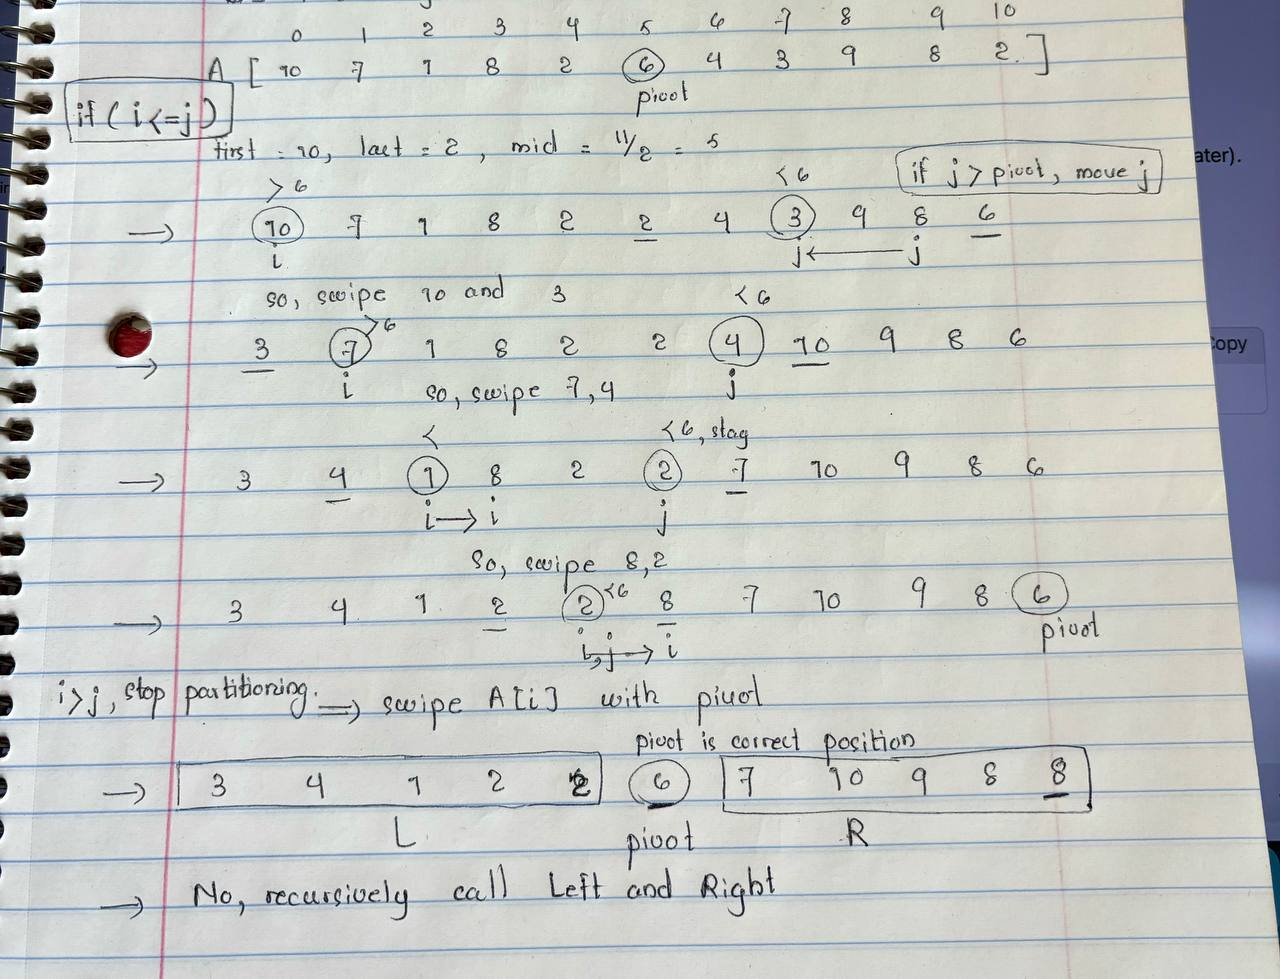 0 1 2 3 4 5 6 7 8 9 10
A [ 10 7 1 8 2 6 4 3 9 8 2 ]
pivot
if ( i <= j )
first = 10, last = 2, mid = 11/2 = 5
if j > pivot, move j
> 6 < 6
→ 10 7 1 8 2 2 4 3 9 8 6
i j ← j
so, swipe 10 and 3
> 6 < 6
→ 3 7 1 8 2 2 4 10 9 8 6
i j
so, swipe 7, 4
< < 6, stay
→ 3 4 1 8 2 2 7 10 9 8 6
i → i j
so, swipe 8, 2
→ 3 4 1 2 2 <6 8 7 10 9 8 6
i, j → i pivot
i > j, stop partitioning. ⇒ swipe A[i] with pivot
pivot is correct position
→ 3 4 1 2 2 6 7 10 9 8 8
L pivot R
→ No, recursively call Left and Right
ater).
opy